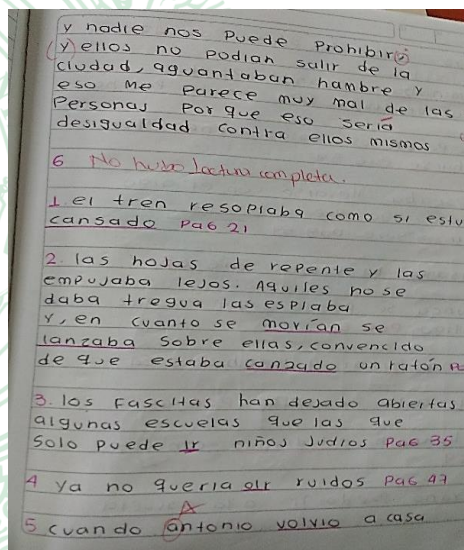 y nadie nos puede prohibir
(y) ellos no podian salir de la
ciudad, aguantaban hambre y
eso me parece muy mal de las
Personas porque eso sería
desigualdad contra ellos mismos
6 No hubo lectura completa.
1. el tren resoplaba como si estu
cansado Pag 21
2. las hojas de repente y las
empujaba lejos. Aquiles no se
daba tregua las espiaba
y, en cuanto se movían se
lanzaba sobre ellas, convencido
de que estaba canzado un ratón
3. los fascitas han dejado abiertas
algunas escuelas que las que
solo puede ir niños judios Pag 35
4 ya no queria oir ruidos Pag 47
A
5 cuando antonio volvio a casa